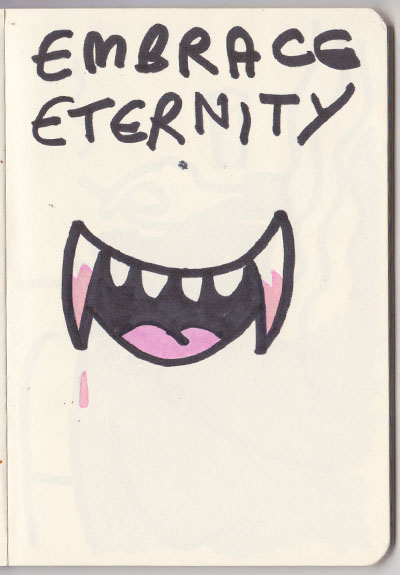 EMBRACE
ETERNITY